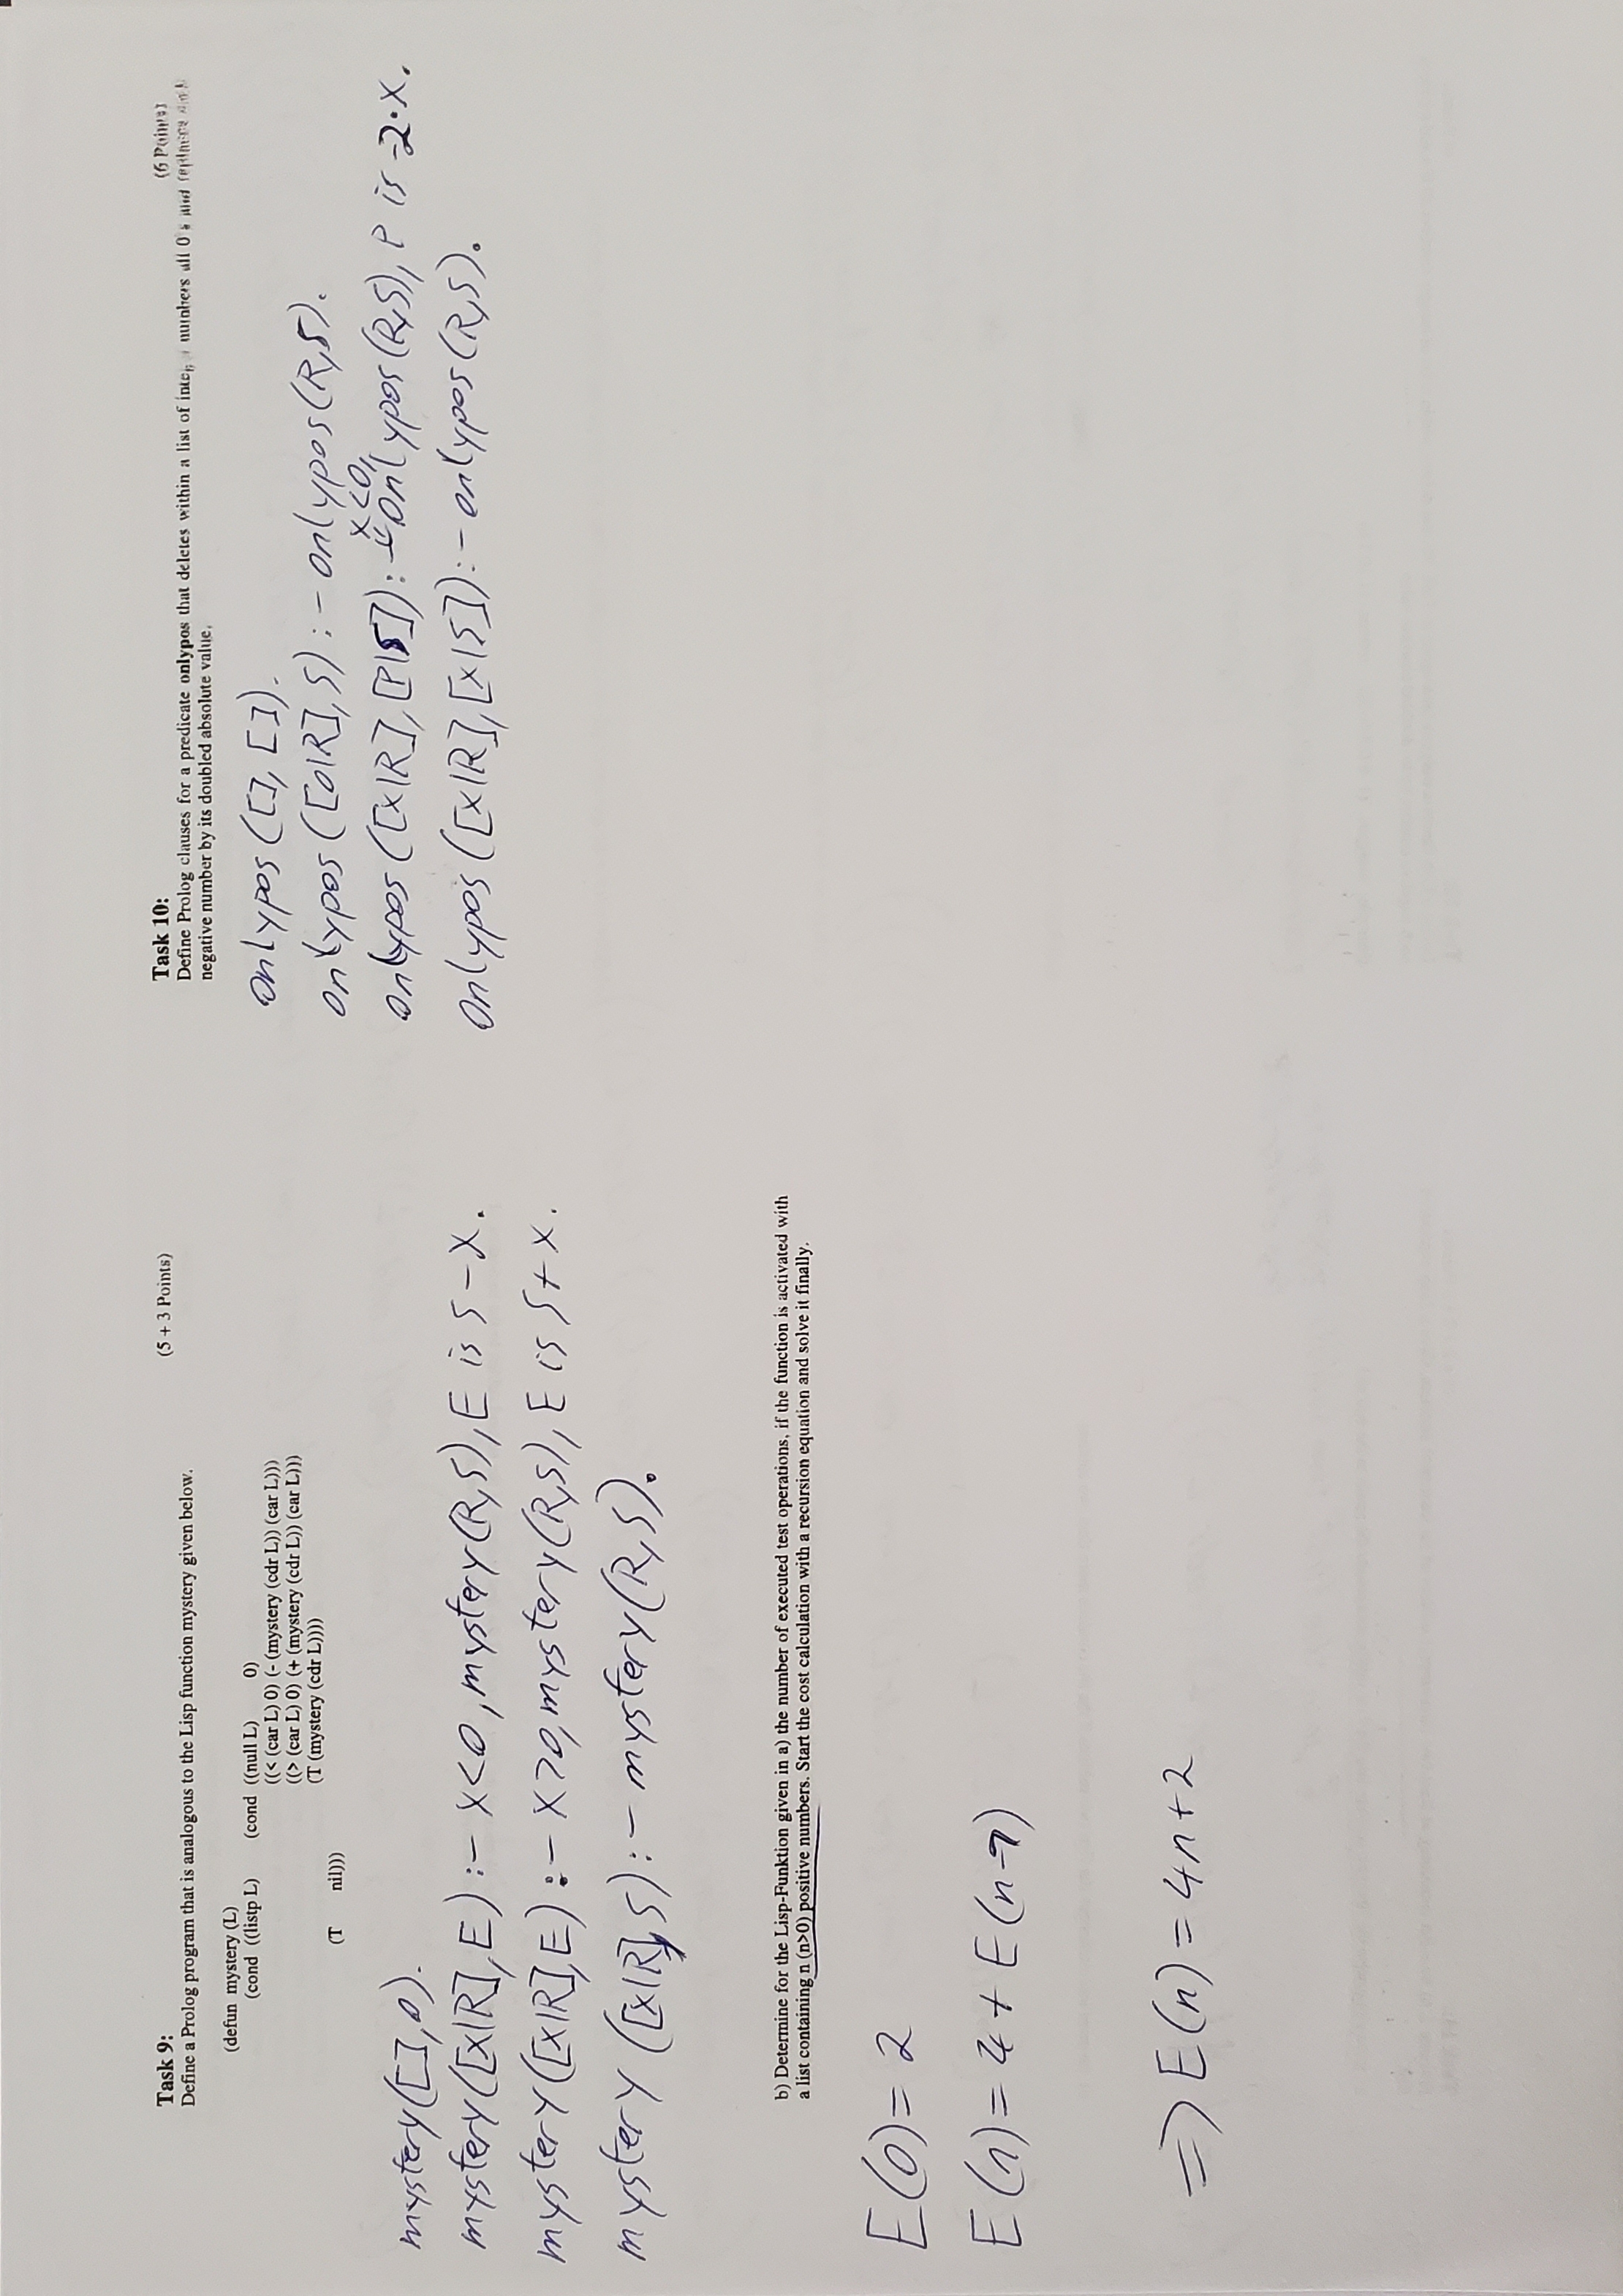 Task 9: (5 + 3 Points)
Define a Prolog program that is analogous to the Lisp function mystery given below.
(defun mystery (L)
(cond ((listp L) (cond ((null L) 0)
((< (car L) 0) (- (mystery (cdr L)) (car L)))
((> (car L) 0) (+ (mystery (cdr L)) (car L)))
(T (mystery (cdr L))))
(T nil)))
mystery([],0).
mystery([X|R],E):- X<0,mystery(R,S),E is S-X.
mystery([X|R],E):- X>0,mystery(R,S),E is S+X.
mystery([X|R],S):- mystery(R,S).
b) Determine for the Lisp-Funktion given in a) the number of executed test operations, if the function is activated with
a list containing n (n>0) positive numbers. Start the cost calculation with a recursion equation and solve it finally.
E(0)=2
E(n)=4+E(n-1)
=> E(n)=4n+2
Task 10: (6 Points)
Define Prolog clauses for a predicate onlypos that deletes within a list of numbers all 0's and
negative number by its doubled absolute value.
onlypos([],[]).
onlypos([0|R],S):- onlypos(R,S).
onlypos([X|R],[P|S]):- X<0, onlypos(R,S), P is -2*X.
onlypos([X|R],[X|S]):- onlypos(R,S).